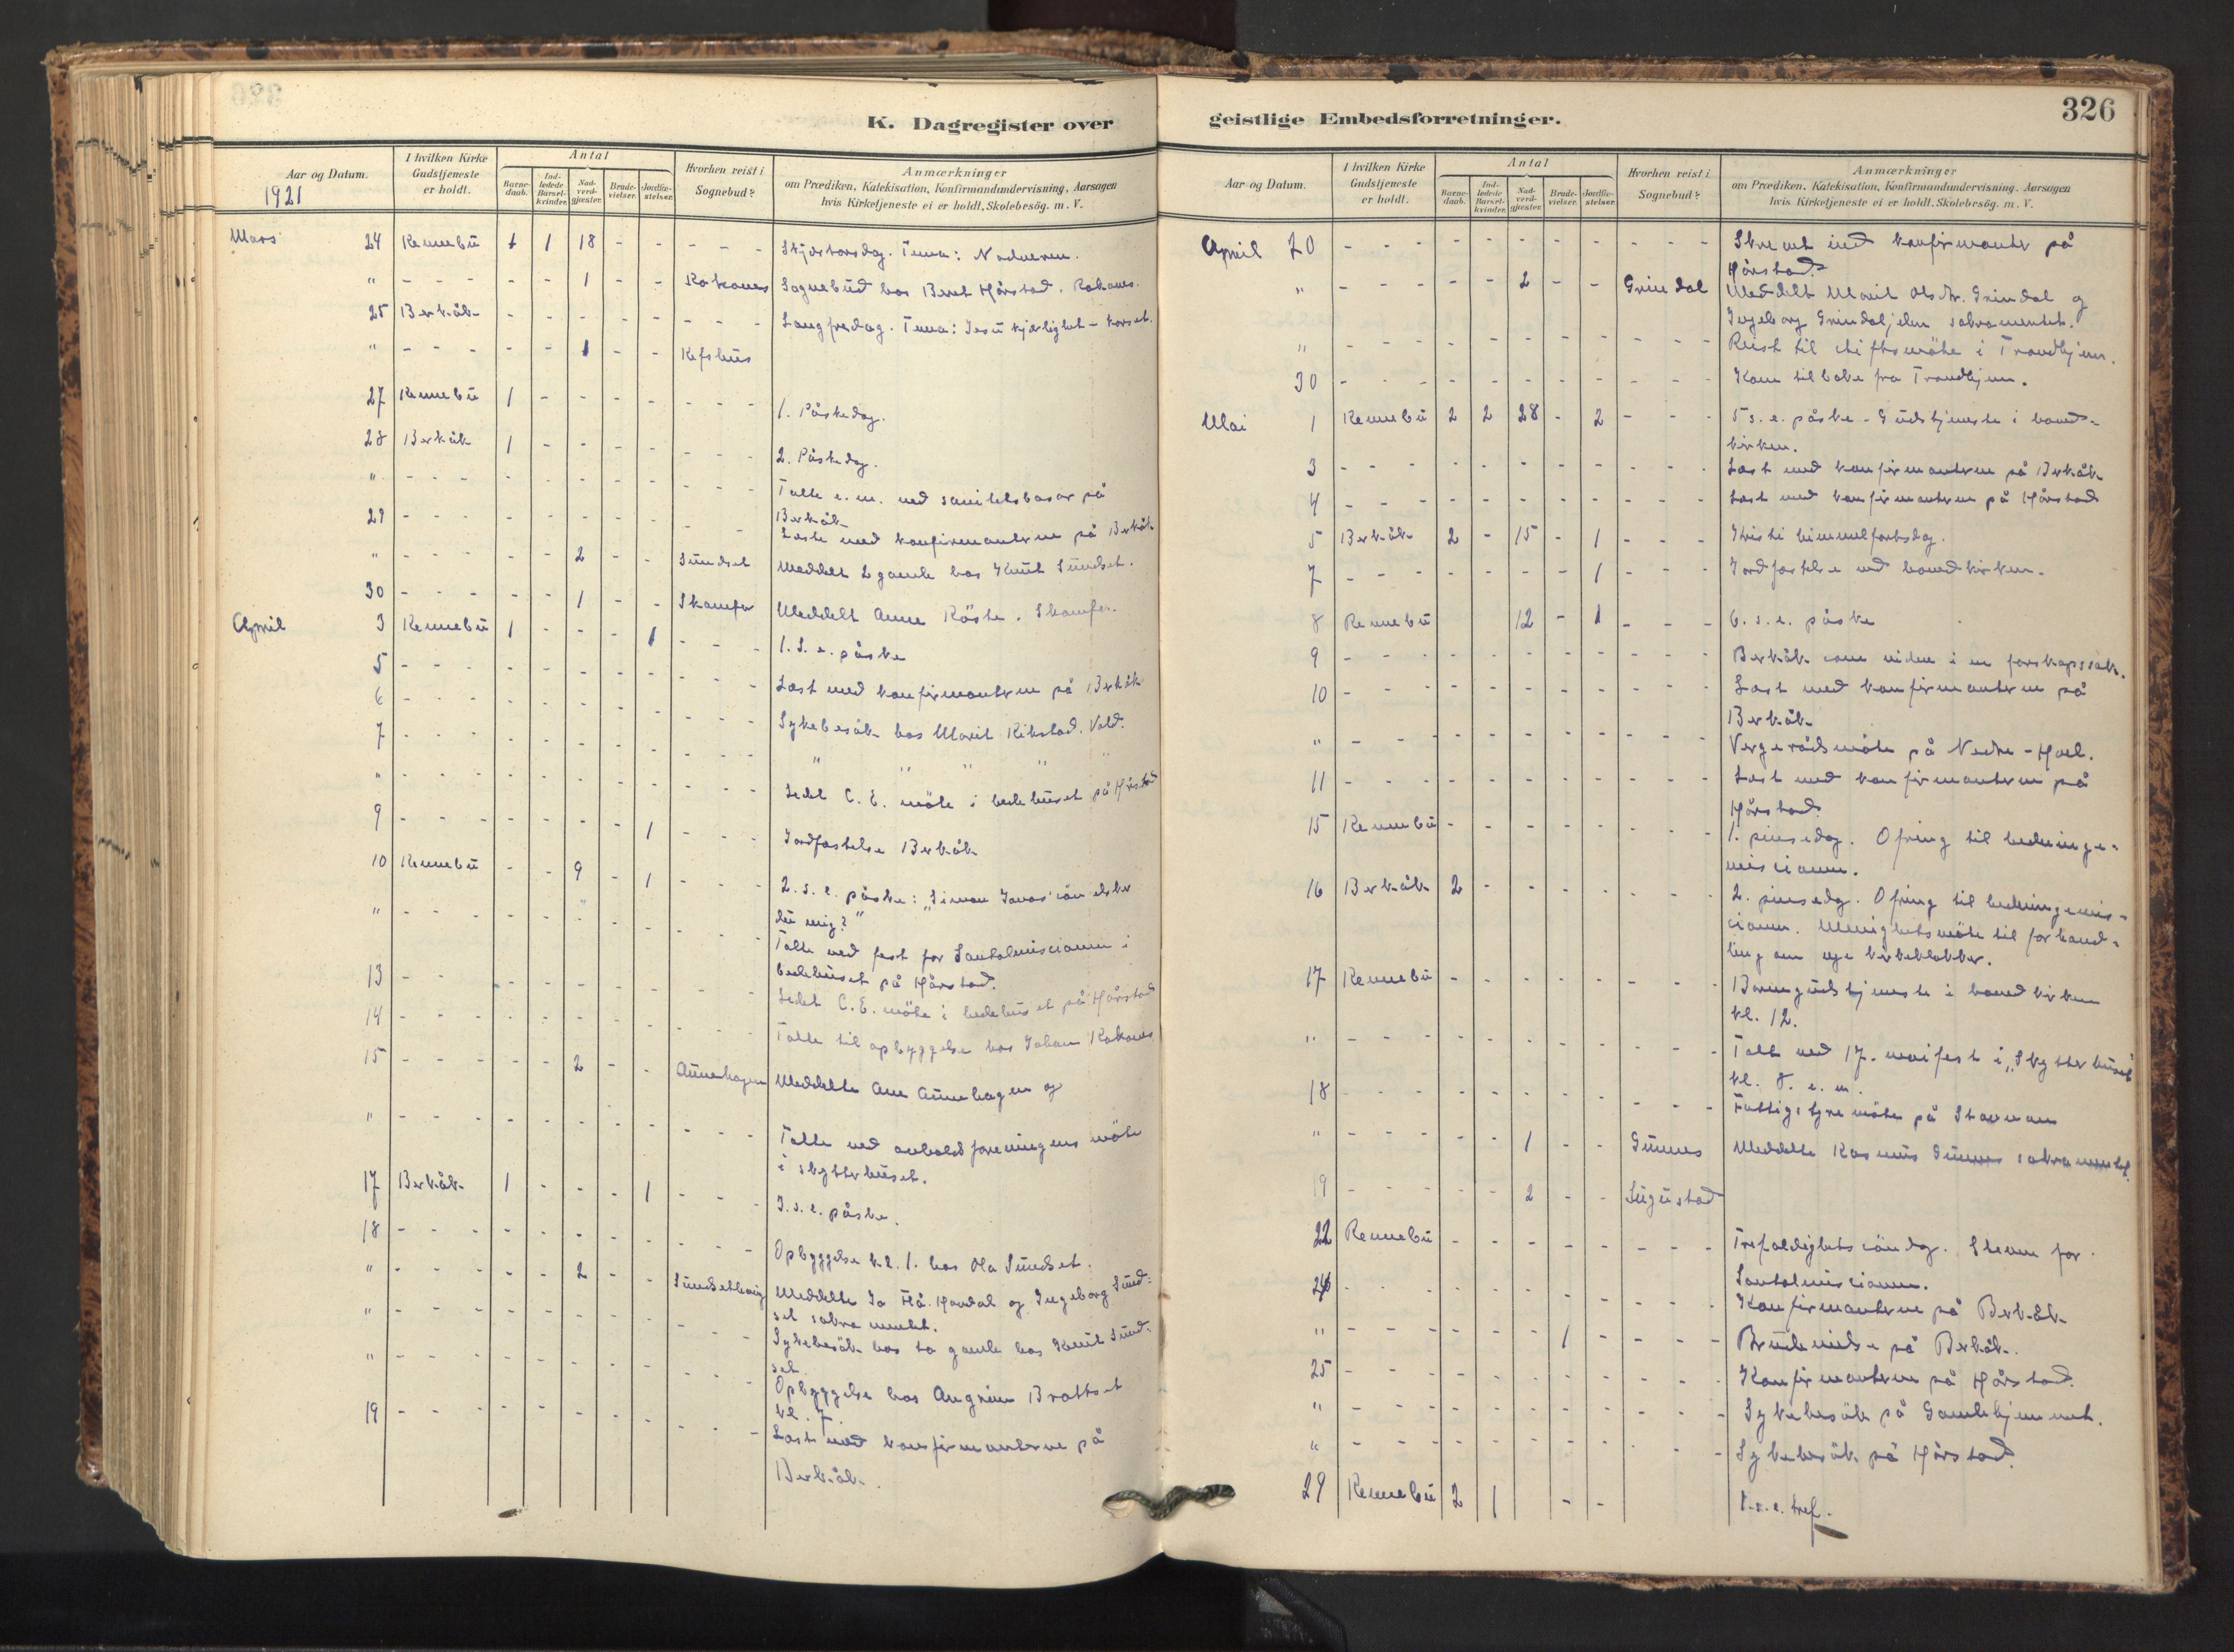 K. Dagregister over
Aar og Datum.
1921
I hvilken Kirke Gudstjeneste er holdt.
Antal
Barne-daab.
Ind-ledede Barsel-kvinder.
Nad-verd-gjæster.
Brude-vielser.
Jordfæ-stelser.
Hvorhen reist i Sognebud?
Anmærkninger
om Prædiken, Katekisation, Konfirmandundervisning, Aarsagen
hvis Kirketjeneste ei er holdt, Skolebesög. m. V.
Mars 24 Rennebu 1 1 18 - - - - - Skjærtorsdag. Tema: Nadveren.
" - - - - - 1 - - Rokones Sognebud hos Beret Hårstad. Rokones.
25 Berkåk - - - - - - - - Langfredag. Tema: Jesu kjærlighet - korset.
" - - - - - 1 - - Refshus
27 Rennebu 1 - - - - - - - 1. Påskedag.
28 Berkåk 1 - - - - - - - 2. Påskedag.
" - - - - - - - - - - - Talte e. m. ved sanitetsbasar på
Berkåk
29 - - - - - - - - - - Læste med konfirmanterne på Berkåk
" - - - - - 2 - - Sundset Meddelt 2 gamle hos Knut Sundset.
30 - - - - - 1 - - Skamfer Meddelt Anne Råste. Skamfer.
April 3 Rennebu 1 - - - 1 - - - 1. S. e. påske
5 - - - - - - - - - - - Læst med konfirmanterne på Berkåk
6 - - - - - - - - - - - Sykebesök hos Marit Rikstad. Vold.
7 - - - - - - - - - - - " " " " "
" - - - - - - - - - - - Ledet C. E. möte i bedehuset på Hårstad
9 - - - - - - - 1 - - - Jordfæstelse Berkåk
10 Rennebu - - 9 - 1 - - - 2. s. e. påske: "Simon Jonas sön elsker
du mig?"
" - - - - - - - - - - - Talte ved fest for Santalmissionen i
bedehuset på Hårstad.
13 - - - - - - - - - - Ledet C. E. möte i bedehuset på Hårstad
14 - - - - - - - - - - Talte til opbyggelse hos Johan Rokones
15 - - - - - 2 - - Aunehagen Meddelte Ane Aunehagen og
" - - - - - - - - - - - Talte ved avholdsforeningens möte
i skytterhuset.
17 Berkåk 1 - - - 1 - - - 3. s. e. påske.
18 - - - - - - - - - - - Opbyggelse kl. 1. hos Ola Sundset.
" - - - - - 2 - - Meddelte Jo Flå. Havdal og Ingeborg Sund-
set sakramentet.
" - - - - - - - - - - - Sykebesök hos to gamle hos Knut Sund-
set.
" - - - - - - - - - - - Opbyggelse hos Angrim Brattset
kl. 7.
19 - - - - - - - - - - - Læst med konfirmanterne på
Berkåk.
geistlige Embedsforretninger.
326
Aar og Datum.
I hvilken Kirke Gudstjeneste er holdt.
Antal
Barne-daab.
Ind-ledede Barsel-kvinder.
Nad-verd-gjæster.
Brude-vielser.
Jordfæ-stelser.
Hvorhen reist i Sognebud?
Anmærkninger
om Prædiken, Katekisation, Konfirmandundervisning, Aarsagen
hvis Kirketjeneste ei er holdt, Skolebesög. m. V.
April 20 - - - - - - - - - - - Skrevet ind konfirmanter på
Hårstad.
" - - - - - 2 - - Grindal Meddelt Marit Olsdtr. Grindal og
Ingeborg Grindal sakramentet.
" - - - - - - - - - - - Reist til stiftsmöte i Trondhjem.
30 - - - - - - - - - - - Kom tilbake fra Trondhjem.
Mai 1 Rennebu 2 2 28 - 2 - - - 5 s. e. påske - Gudstjeneste i hoved-
kirken.
3 - - - - - - - - - - - Læst med konfirmanterne på Berkåk
4 - - - - - - - - - - - Læst med konfirmanterne på Hårstad
5 Berkåk 2 - 15 - 1 - - - Kristi himmelfartsdag.
7 - - - - - - - 1 - - - Jordfæstelse ved hovedkirken.
8 Rennebu 12 - 1 - - - 6. s. e. påske
9 - - - - - - - - - - - Berkåk som vidne i en farskapssak.
10 - - - - - - - - - - - Læst med konfirmanterne på
Berkåk
" - - - - - - - - - - - Vergerådsmöte på Nedre-Hoel.
11 - - - - - - - - - - - Læst med konfirmanterne på
Hårstad
15 Rennebu - - - - - - - - 1. pinsedag. Ofring til hedninge-
missionen.
16 Berkåk 2 - - - - - - - 2. pinsedag. Ofring til hedningemis-
sionen. Menighetsmöte til forhand-
ling om nye kirkeklokker.
17 Rennebu - - - - - - - - Barnegudstjeneste i hovedkirken
kl. 12.
" - - - - - - - - - - - Talt ved 17. maifest i "Skytterhuset"
kl. 8. e. m.
18 - - - - - - - - - - - Fattigstyremöte på Stavman
" - - - - - 1 - - Gunnes Meddelte Rasmus Gunnes sakramentet.
19 - - - - - 2 - - Lugustad
22 Rennebu - - - - - - - - Trefoldighetssöndag. Stevne for
Santalmissionen.
24 - - - - - - - - - - - Konfirmanterne på Berkåk
" - - - - - - 1 - - - - Brudevielse på Berkåk.
25 - - - - - - - - - - - Konfirmanterne på Hårstad.
" - - - - - - - - - - - Sykebesök på Gamlehjemmet.
" - - - - - - - - - - - Sykebesök på Hårstad.
29 Rennebu 2 1 - - 1. s. e. tref.